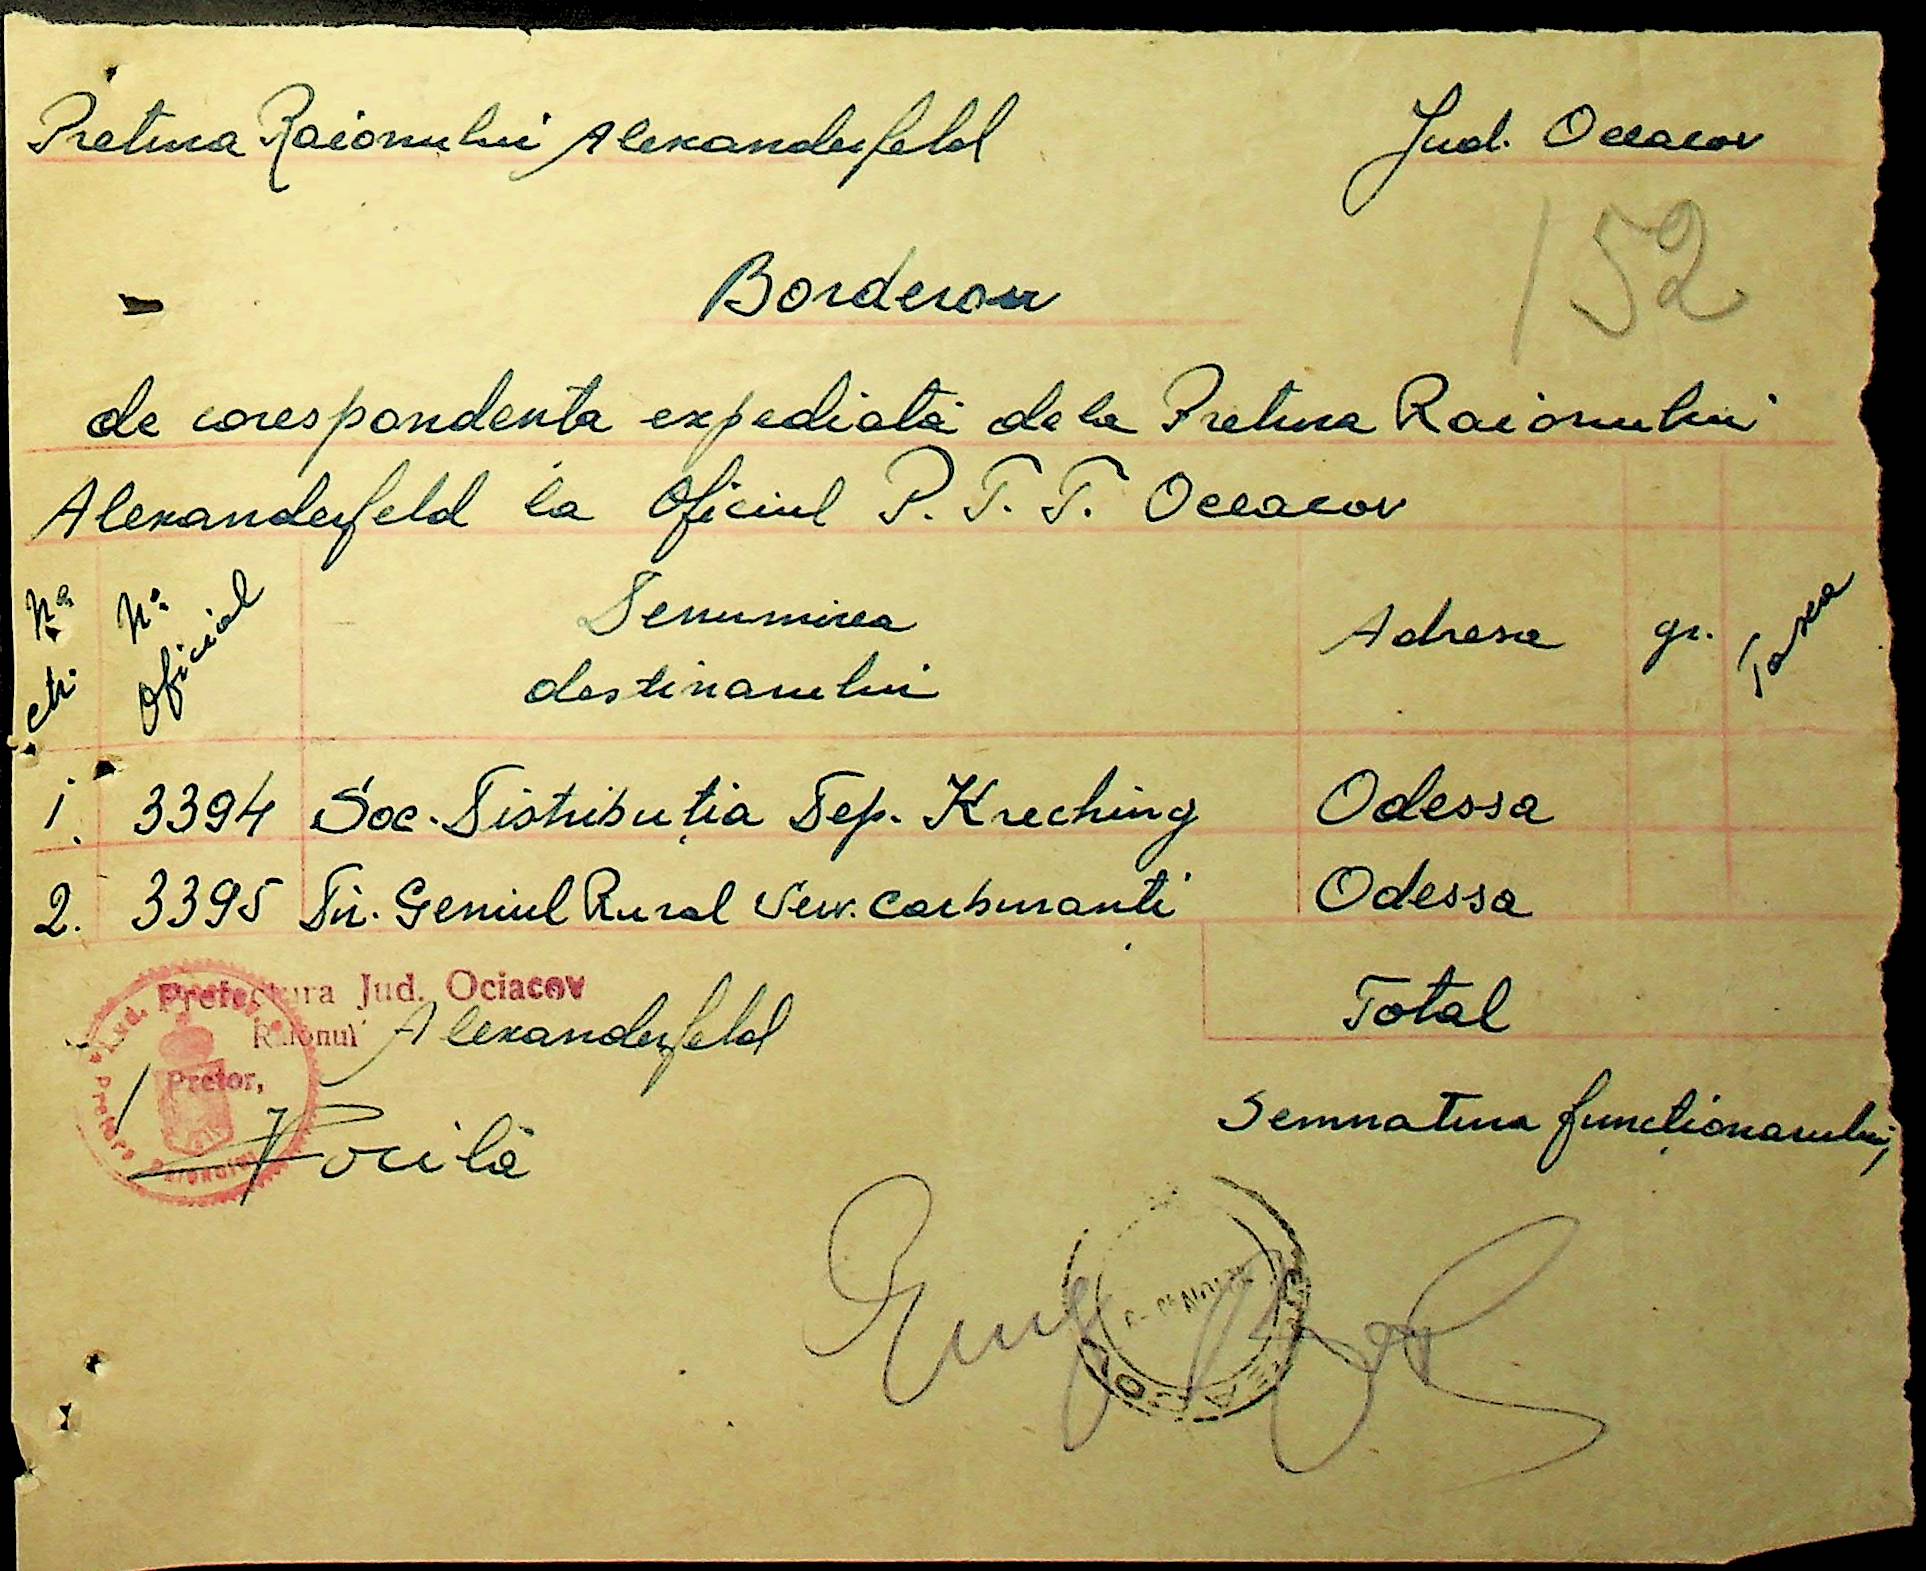 Pretura Raionului Alexanderfeld Jud. Oceacov
152
Borderou
de corespondenta expediată dela Pretura Raionului
Alexanderfeld la Oficiul P.T.T. Oceacov
No. crt. No. Oficial Denumirea destinarului Adresa gr. Taxa
1. 3394 Soc. Distribuția Dep. Kreching Odessa
2. 3395 Dir. Geniul Rural Serv. Carburanti Odessa
Prefectura Jud. Ociacov
Raionul Alexanderfeld
Total
Pretor,
Semnatura funcționarului,